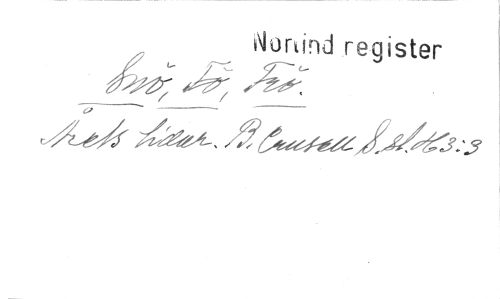 Norlind register
Snö, Tö, Frö.
Årets tider. B. Crusell S. st. H3:3